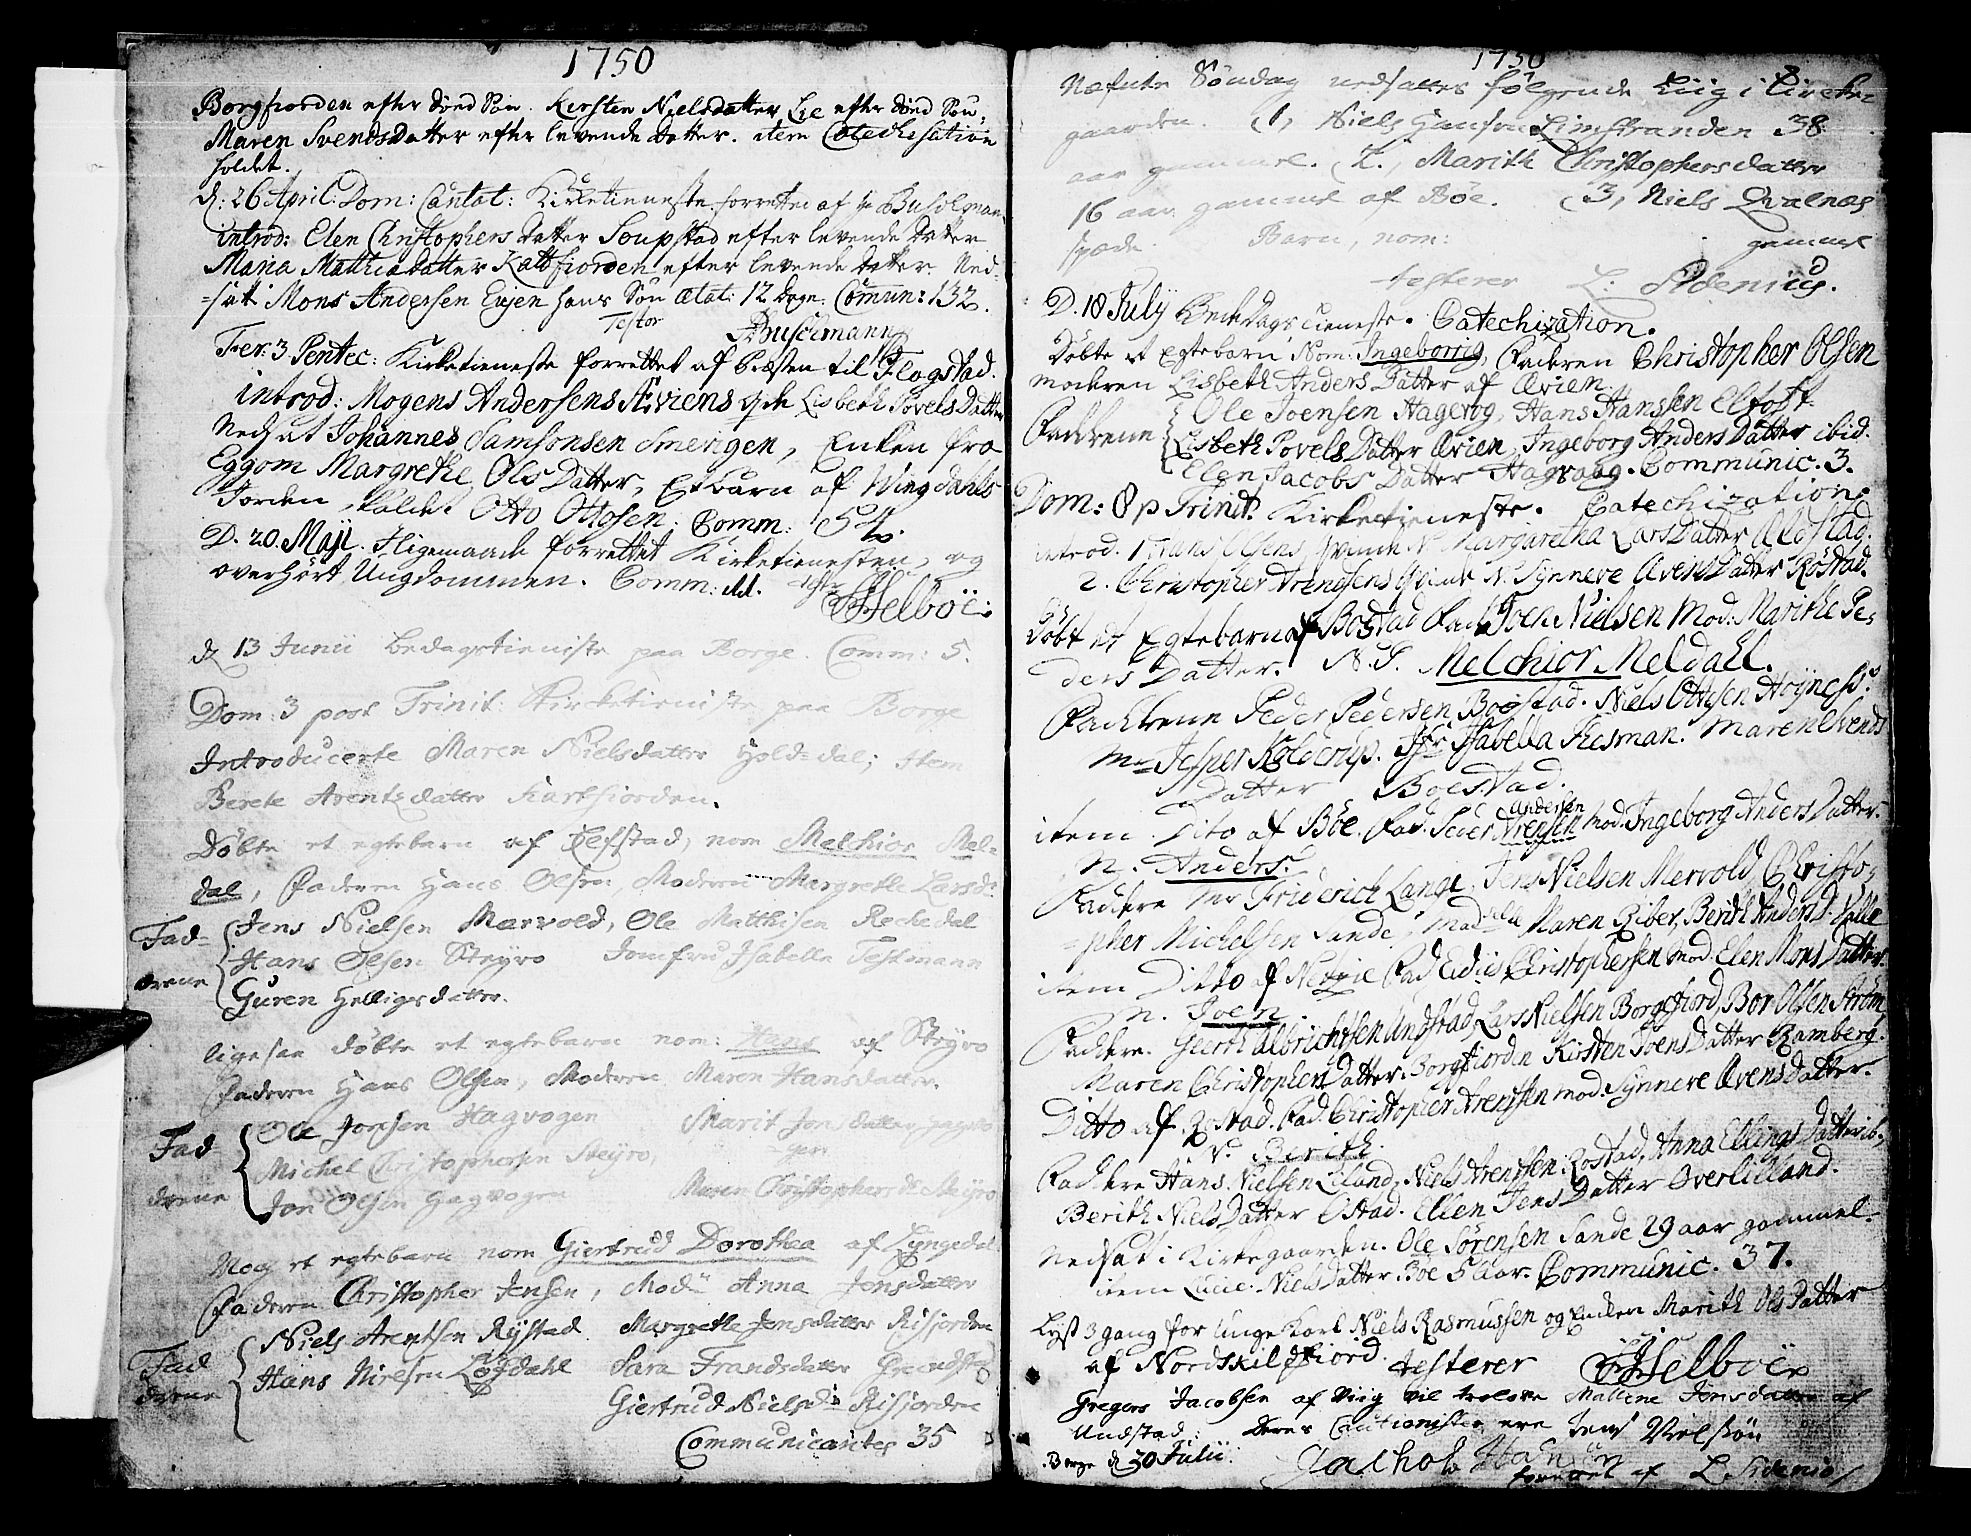 1750
Borgfiorden efter dönd Sön. Kirsten Nielsdatter Lie efter dönd Sön.
Maren Svendsdatter efter levende datter. item Catechisation
holdet.
d: 26 April: Dom: Cantat: Kirketieneste forrettet af Hr Buschman
introd: Elen Christophers datter Soupstad efter levende datter
Maria Matthiadatter Kaltfiorden efter levende datter. Ned-
=satt Mons Andersen Eujen hans Sön ætat: 12 dage. Commun: 132.
Testor Buschmann
Fer: 3 Pentec: Kirketieneste forrettet af Præsten til Flagstad.
introd: Mogens Andersens Æviens qde Lisbeth Povels Datter
Nedsat Johannes Samsonsen Smerigen, Enken fra
Eggom Margrethe Ols Datter, Et barn af Wingdahls
Jorden, kaldet Otto Ottosen; Comm: 54.
D. 20. Maji. Ligemaade forrettet Kirketienesten, og
overhört Ungdommen. Comm:
Helboe
d 13 Junii bedagstieniste paa Borge. Comm: 5.
Dom: 3 post Trinit: Kirketieniste paa Borge
Introducerte Maren Nielsdatter Holdal; Item
Berete Arentsdatter Kartfiorden.
Döbte et egtebarn af Lefstad, nom Melchior Mel-
dal, Faderen Hans Olsen, Moderen Margrethe Larsd:
Fad- Jens Nielsen Marvold, Ole Matthisen Reckedal
Hans Olsen Steyro Jomfru Isabella Testmann
drene Guren Helligsdatter.
ligesaa döbte et egtebarn nom: Hans af Steyro
Faderen Hans Olsen, Moderen Maren Hansdatter.
Fad Ole Jonsen Hagvogen Marit Jonsdatter Hagvo
Michel Christophersen Steyro, gen
drene Jon Olsen Hagvogen Maren Christophersd: Steyro
Nog et egtebarn nom Giertrud Dorothea af Lyngedal
Faderen Christopher Jensen, Mod: Anna Jensdatter
Fad Niels Arentsen Rystad Margrethe Jensdatter Risjorden
drene Hans Nielsen Lofdahl Sara Frandsdatter Grundstad
Giertrud Nielsd: Risjorden
Communicantes 35
1750
Næste Söndag nedsattes fölgende Liig i Kirke-
gaarden. 1, Niels Hansen Limstranden 38
aar gammel. 2, Marith Christophersdatter
16 aar gammel af Böe. 3, Niels Qvalnæs
spæde Barn, nom: gammel
testerer L: Sidenius.
D. 18 July Bededags tieneste. Catechization.
Döbte et Egtebarn, Nom: Ingeborrig, Faderen Christopher Olsen
moderen Lisbeth Anders Datter af Ævien.
Faddrene Ole Joensen Hagevog, Hans Hanssen Eltoft
Lisbeth Povels Datter Ævien, Ingeborg Anders Datter ibid.
Elen Jacobs Datter Hagvaag. Communic. 3.
Dom: 8 p Trinit. Kirketieneste. Catechization.
introd. 1. Hans Olsens Qvinde N. Margaretha Lars Datter Olestad.
2. Christopher Arentsens Qvinde N. Synneve Ævens Datter Röstad.
Döbt et Egtebarn af Bostad Fad. Joen Nielsen Mod: Marithe Pe-
ders Datter. N. S. Melchior Meldahl.
Faddrene Peder Pedersen Boestad. Niels Ottesen Höynesd.
Mr Jesper Kolderup. Jfr: Isabella Tesman. Maren Svends
Datter Boestad.
item Dito af Böe. Fad. Peder Arensen Andersen Mod: Ingeborg Anders Datter.
N. Anders.
Faddere Mr Friderich Lange, Jens Nielsen Mervold, Christo-
=pher Michelsen Sande, Maren Riber, Berith Andersd: Valle
item Ditto af Fad. Christophersen Mod. Elen Mons Datter.
N. Joen.
Faddere. Geerth Albrichtsen Undstad, Lars Nielsen Borgefiord, Bor Olsen Ström
Maren Christophers Datter. Borgfiorden Kirsten Joens Datter Ramberg.
Ditto af Rostad. Fad. Christopher Arentsen Mod. Synneve Ævensdatter.
N. Berith.
Faddere Hans Nielsen Liland, Niels Arentsen Rostad, Anna Ellings Datter ib.
Berith Niels Datter Ostad. Ellen Jens Datter Overliland.
Nedsat i Kirkegaarden. Ole Sörensen Sande 29 aar gammel.
item Lucie: Niels Datter Boe 5 aar. Communic. 37.
Lyst 3 gang for unge Karl Niels Rasmussen og Enken Marith Ols Datter
af Nordskilsfiord. testerer Helboe
Gregers Jacobsen af Wiig vil trolove Mallene Jonsdatter af
Undstad: deres Cautionister ere Jens Nielssön
Borge d 30 Julii.
forrettet af L. Sidenio